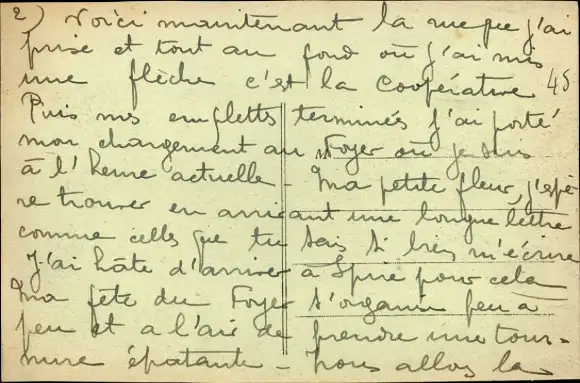 2) Voici maintenant la rue que j'ai
prise et tout au fond où j'ai mis
une flèche c'est la Coopérative 45
Puis mes empletts terminés j'ai porté
mon chargement au Foyer où je suis
à l'heure actuelle - Ma petite fleur, j'espè
re trouver en arrivant une longue lettre
comme celles que tu sais si bien m'écrire
J'ai hâte d'arriver à Spire pour cela
Ma fête du Foyer s'organise peu à
peu et a l'air de prendre une tour=
nure épatante - Nous allons la